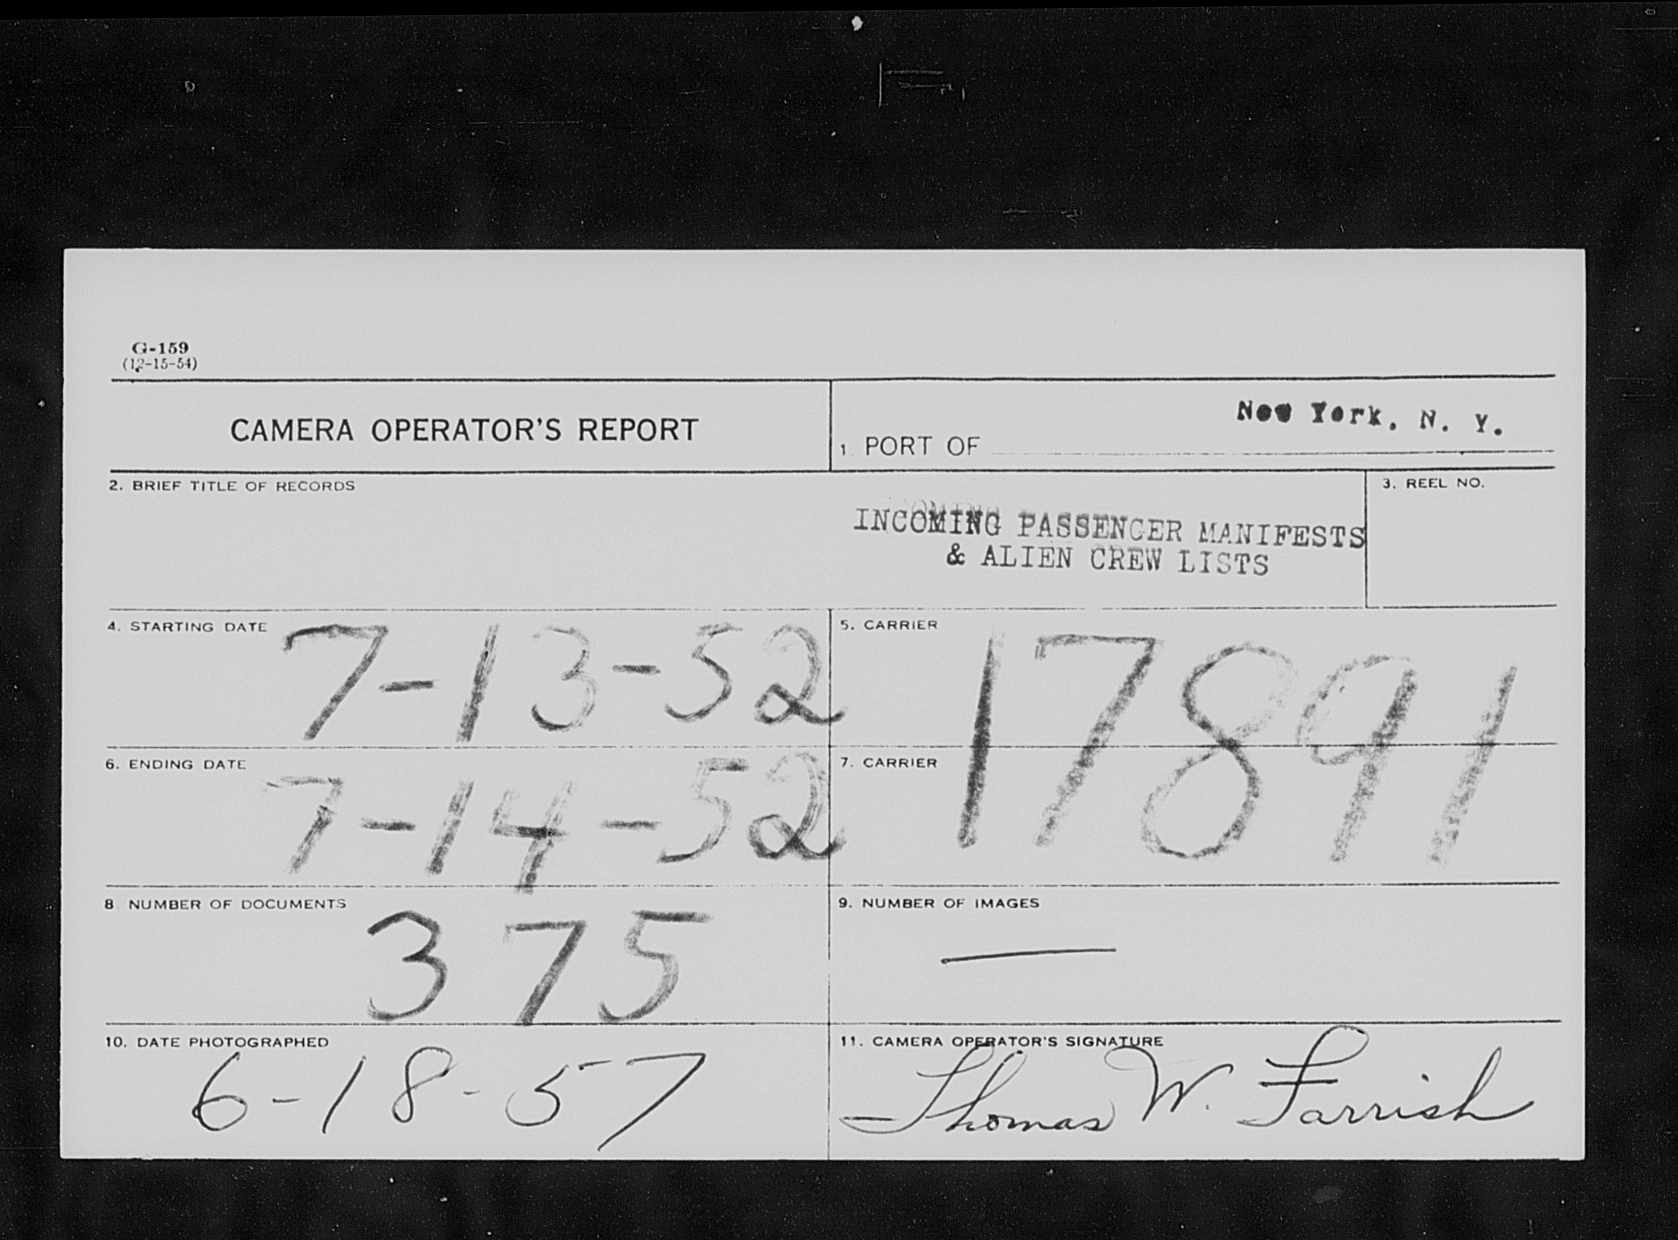 G-159
(12-15-54)
CAMERA OPERATOR'S REPORT
1. PORT OF New York, N. Y.
2. BRIEF TITLE OF RECORDS
INCOMING PASSENGER MANIFESTS
& ALIEN CREW LISTS
3. REEL NO.
4. STARTING DATE 7-13-52
5. CARRIER 17891
6. ENDING DATE 7-14-52
7. CARRIER
8. NUMBER OF DOCUMENTS 375
9. NUMBER OF IMAGES —
10. DATE PHOTOGRAPHED
6-18-57
11. CAMERA OPERATOR'S SIGNATURE
Thomas W. Farrish